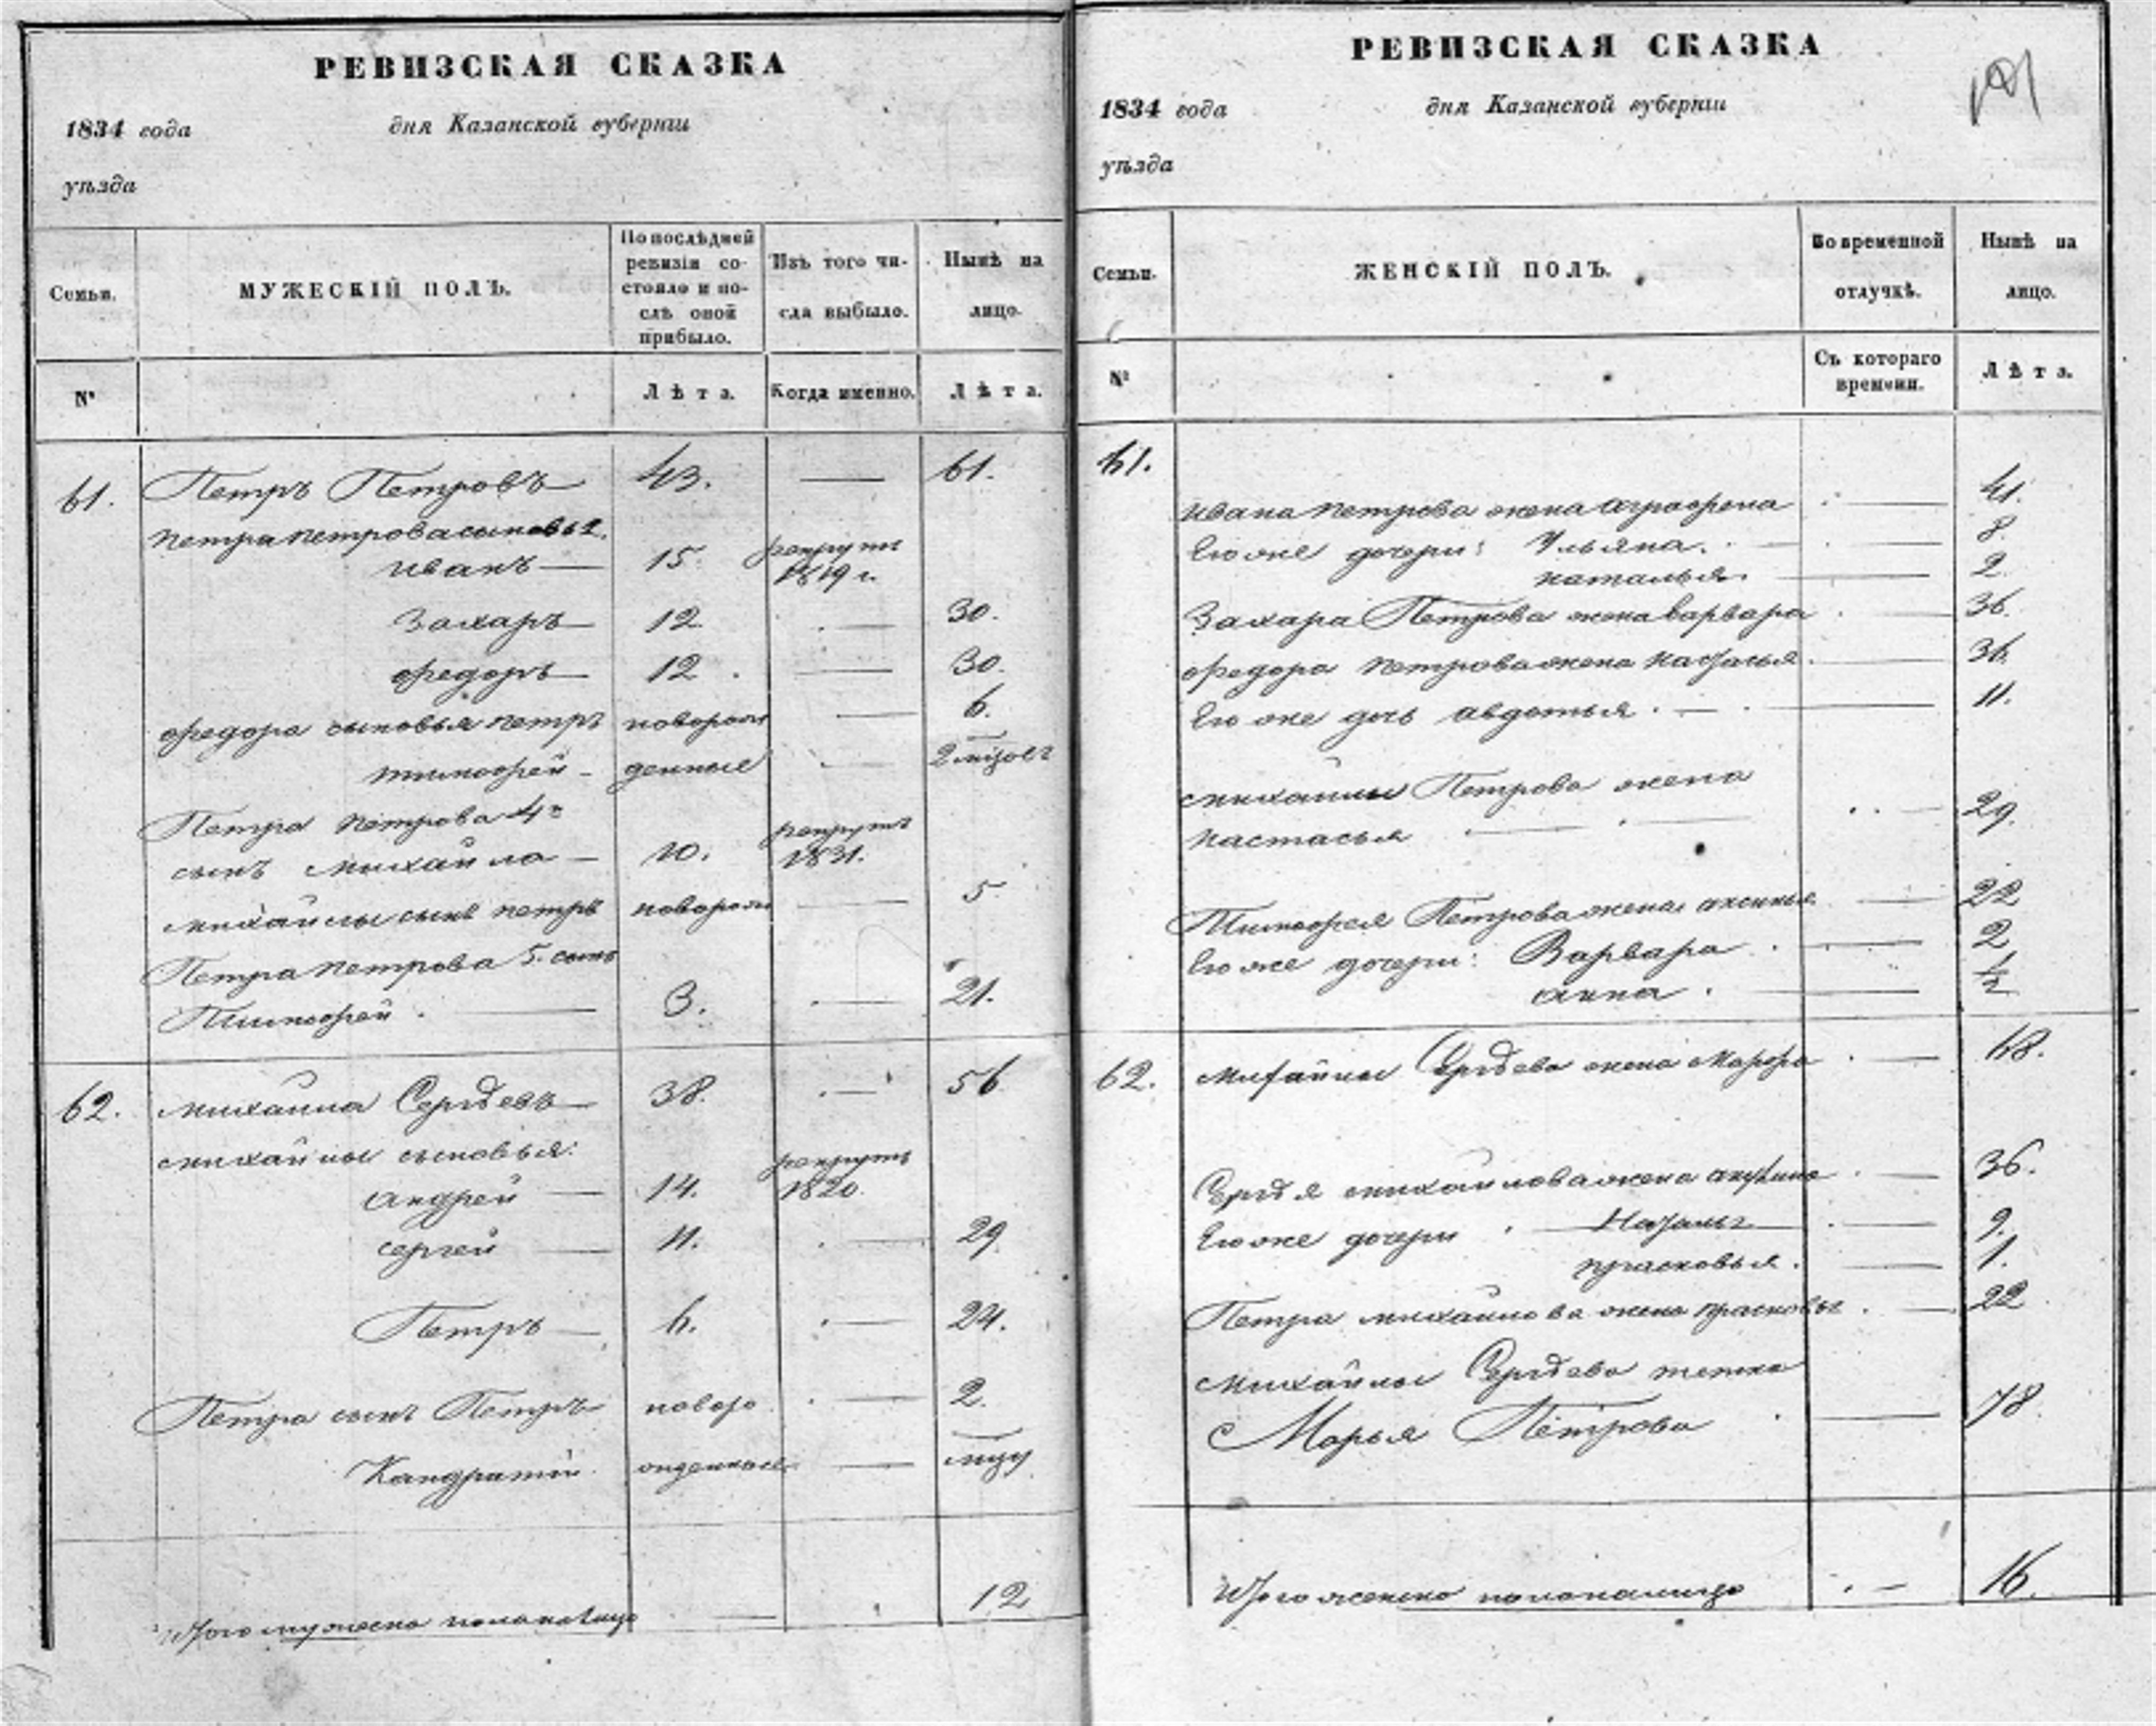 РЕВИЗСКАЯ СКАЗКА
1834 года дня Казанской губерніи
уѣзда
Семьи. МУЖЕСКІЙ ПОЛЪ. По послѣдней ревизіи состояло и послѣ оной прибыло. Изъ того числа выбыло. Нынѣ на лицо.
№ Лѣта. Когда именно. Лѣта.
61. Петръ Петровъ 43. — 61.
Петра Петрова сыновья
Иванъ — 15. рекрутъ 1819 г.
Захаръ — 12 — 30.
Федоръ — 12. — 30.
Федора сыновья Петръ новорож — 6.
Тимофей — денные — 2 мѣсяц
Петра Петрова 4й
сынъ Михайла — 10. рекрутъ 1831.
Михайлы сынъ Петръ новорож — 5
Петра Петрова 5. сынъ
Тимофей. — 3. — 21.
62. Михайла Сергѣевъ — 38. — 56
Михайлы сыновья:
Андрей — 14. рекрутъ 1820.
Сергей — 11. — 29
Петръ — 6. — 24.
Петра сынъ Петръ новоро — 2.
Кандратій ожденные —
Итого мужеска пола налицо — 12
РЕВИЗСКАЯ СКАЗКА
1834 года дня Казанской губерніи
уѣзда
Семьи. ЖЕНСКІЙ ПОЛЪ. Во временной отлучкѣ. Нынѣ на лицо.
№ Съ котораго времени. Лѣта.
61.
Ивана Петрова жена Аграфена — 41.
Его же дочери: Ульяна. — 8.
Наталья. — 2
Захара Петрова жена Варвара — 36.
Федора Петрова жена Настасья. — 36.
Его же дочь Авдотья. — 11.
Михайлы Петрова жена
Настасья — 29.
Тимофея Петрова жена Аксинья — 22
Его же дочери: Варвара. — 2
Анна. — ½
62. Михайлы Сергѣева жена Марфа — 68.
Сергѣя Михайлова жена Акулина — 36.
Его же дочери — Наталья — 9.
Прасковья. — 1.
Петра Михайлова жена Прасковья. — 22
Михайлы Сергѣева тетка
Марья Петрова — 78.
Итого женска пола налицо — 16.